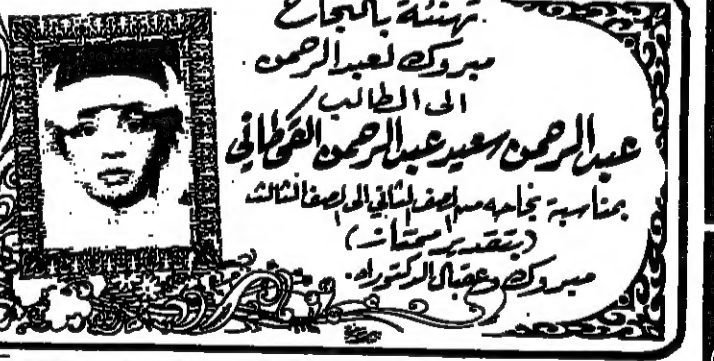 تهنئة بالنجاح
مبروك لعبدالرحمن
الى الطالب
عبدالرحمن سعيد عبدالرحمن القحطاني
بمناسبة نجاحه من الصف الثاني الى الصف الثالث
(بتقدير امتياز)
مبروك وعقبال الدكتوراه.